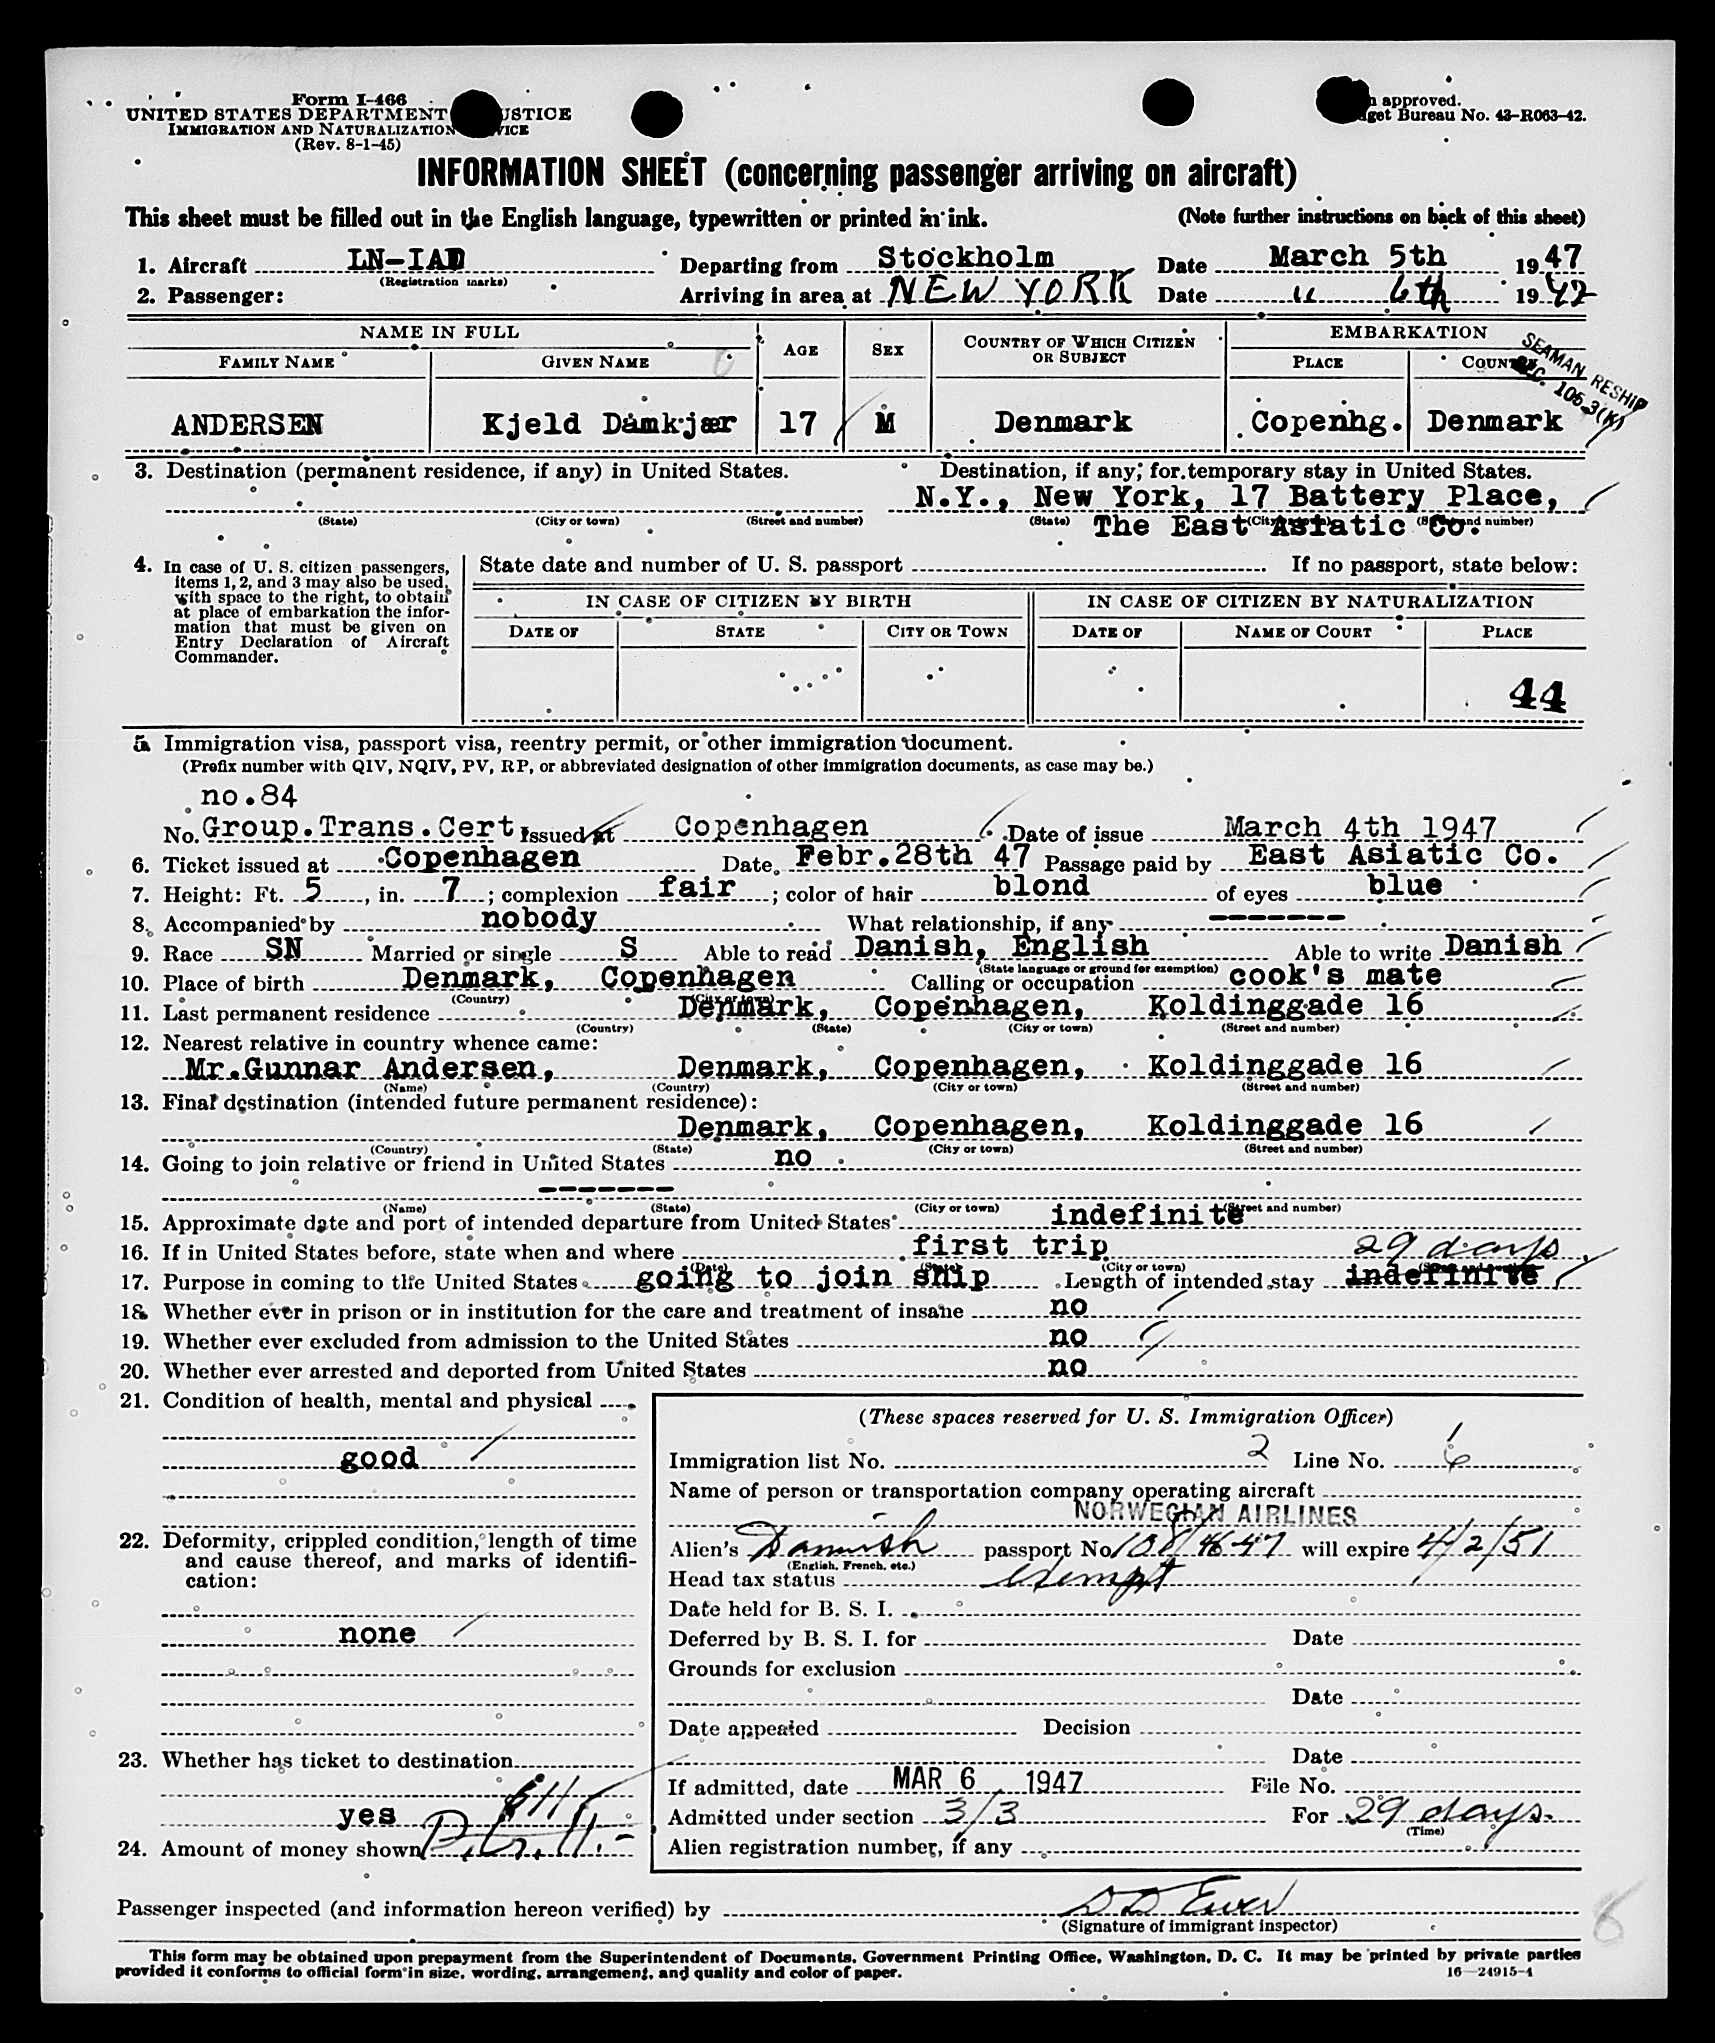 Form I-466
UNITED STATES DEPARTMENT JUSTICE
IMMIGRATION AND NATURALIZATION SERVICE
(Rev. 8-1-45)
approved.
Budget Bureau No. 43-R063-42.
INFORMATION SHEET (concerning passenger arriving on aircraft)
This sheet must be filled out in the English language, typewritten or printed in ink.
(Note further instructions on back of this sheet)
1. Aircraft LN-IAD Departing from Stockholm Date March 5th 1947
(Registration marks)
2. Passenger: Arriving in area at NEW YORK Date " 6th 1947
NAME IN FULL AGE SEX COUNTRY OF WHICH CITIZEN OR SUBJECT EMBARKATION
FAMILY NAME GIVEN NAME PLACE COUNTRY
SEAMAN RESHIP
SEC. 105.3(K)
ANDERSEN Kjeld Damkjær 17 M Denmark Copenhg. Denmark
3. Destination (permanent residence, if any) in United States. Destination, if any, for temporary stay in United States.
N.Y., New York, 17 Battery Place,
(State) (City or town) (Street and number) (State) (City or town) (Street and number)
The East Asiatic Co.
4. In case of U. S. citizen passengers, items 1, 2, and 3 may also be used, with space to the right, to obtain at place of embarkation the information that must be given on Entry Declaration of Aircraft Commander.
State date and number of U. S. passport If no passport, state below:
IN CASE OF CITIZEN BY BIRTH IN CASE OF CITIZEN BY NATURALIZATION
DATE OF STATE CITY OR TOWN DATE OF NAME OF COURT PLACE
44
5. Immigration visa, passport visa, reentry permit, or other immigration document.
(Prefix number with QIV, NQIV, PV, RP, or abbreviated designation of other immigration documents, as case may be.)
no.84
No. Group.Trans.Cert Issued at Copenhagen Date of issue March 4th 1947
6. Ticket issued at Copenhagen Date Febr.28th 47 Passage paid by East Asiatic Co.
7. Height: Ft. 5, in. 7; complexion fair; color of hair blond of eyes blue
8. Accompanied by nobody What relationship, if any -------
9. Race SN Married or single S Able to read Danish, English Able to write Danish
(State language or ground for exemption)
10. Place of birth Denmark, Copenhagen Calling or occupation cook's mate
(Country) (City or town)
11. Last permanent residence Denmark, Copenhagen, Koldinggade 16
(Country) (State) (City or town) (Street and number)
12. Nearest relative in country whence came:
Mr.Gunnar Andersen, Denmark, Copenhagen, Koldinggade 16
(Name) (Country) (City or town) (Street and number)
13. Final destination (intended future permanent residence):
Denmark, Copenhagen, Koldinggade 16
(Country) (State) (City or town) (Street and number)
14. Going to join relative or friend in United States no
-------
(Name) (State) (City or town) (Street and number)
15. Approximate date and port of intended departure from United States indefinite
16. If in United States before, state when and where first trip 29 days
(Date) (State) (City or town) (Street and number)
17. Purpose in coming to the United States going to join ship Length of intended stay indefinite
18. Whether ever in prison or in institution for the care and treatment of insane no
19. Whether ever excluded from admission to the United States no
20. Whether ever arrested and deported from United States no
21. Condition of health, mental and physical
good
22. Deformity, crippled condition, length of time and cause thereof, and marks of identification:
none
23. Whether has ticket to destination
yes
24. Amount of money shown
(These spaces reserved for U. S. Immigration Officer)
Immigration list No. 2 Line No. 6
Name of person or transportation company operating aircraft
NORWEGIAN AIRLINES
Alien's Danish passport No. 108/46-47 will expire 4/2/51
(English, French, etc.)
Head tax status exempt
Date held for B. S. I.
Deferred by B. S. I. for Date
Grounds for exclusion
Date
Date appealed Decision
Date
If admitted, date MAR 6 1947 File No.
Admitted under section 3/3 For 29 days.
(Time)
Alien registration number, if any
Passenger inspected (and information hereon verified) by
(Signature of immigrant inspector)
8
This form may be obtained upon prepayment from the Superintendent of Documents, Government Printing Office, Washington, D. C. It may be printed by private parties
provided it conforms to official form in size, wording, arrangement, and quality and color of paper.
16—24915-1